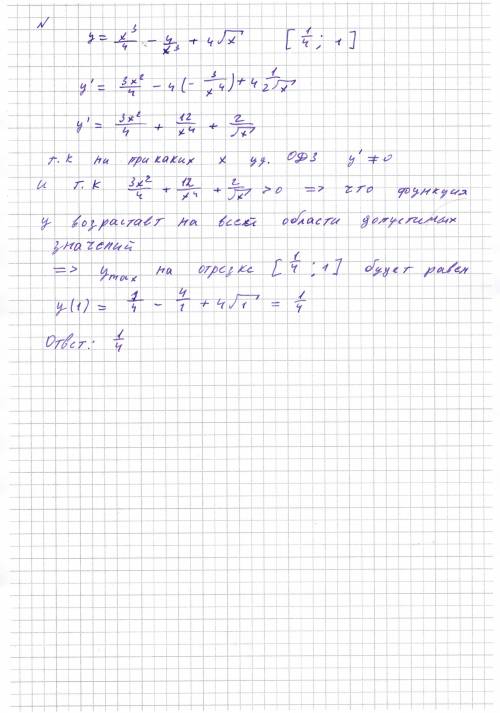 N
y = x³/4 - 4/x³ + 4√x [1/4 ; 1]
y' = 3x²/4 - 4(-3/x⁴) + 4 1/2√x
y' = 3x²/4 + 12/x⁴ + 2/√x
т.к ни при каких x уд. ОДЗ y' ≠ 0
и т.к 3x²/4 + 12/x⁴ + 2/√x > 0 => что функция
y возрастает на всей области допустимых
значений
=> y max на отрезке [1/4 ; 1] будет равен
y(1) = 1/4 - 4/1 + 4√1 = 1/4
Ответ: 1/4